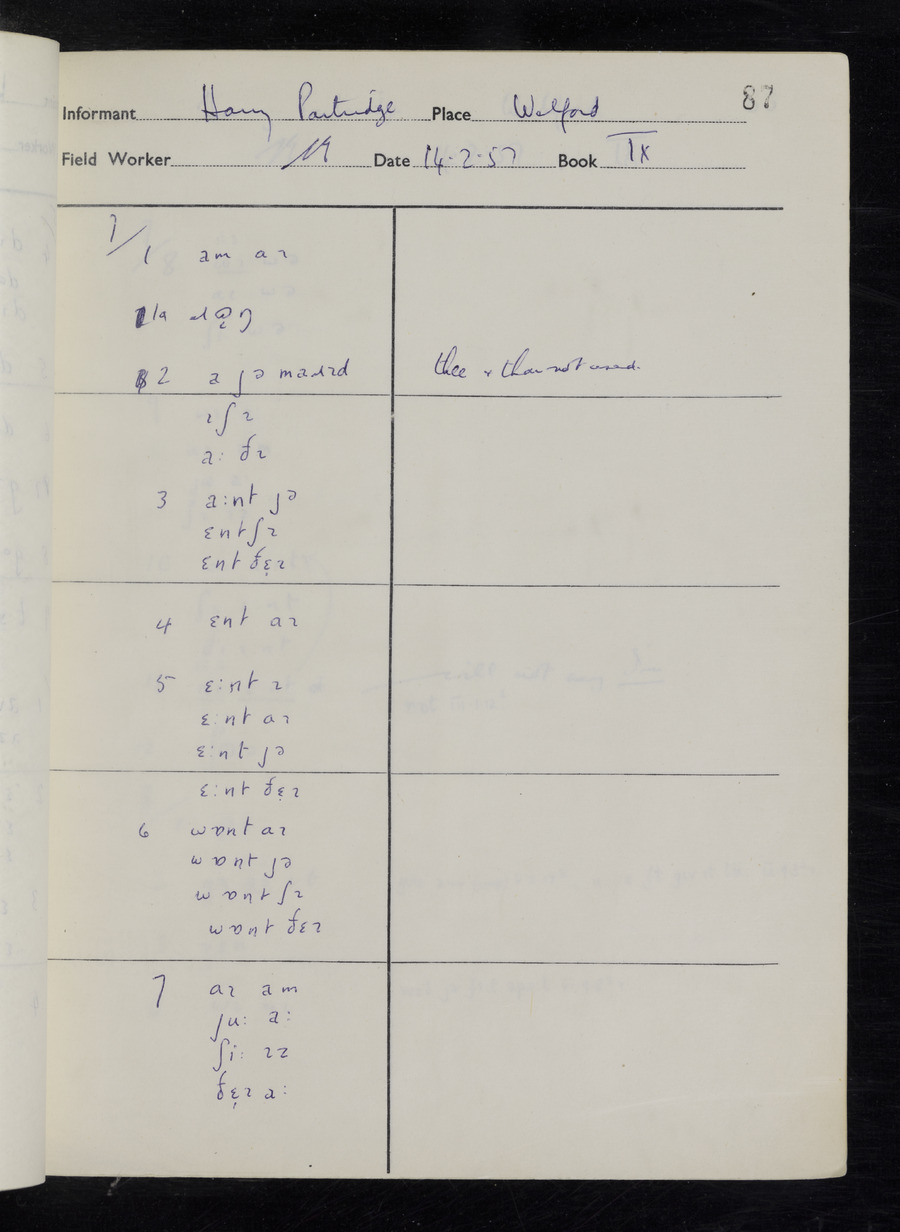 87
Informant Harry Partridge Place Welford
Field Worker Date 14.2.57 Book IX
7/1 am aɪ
2 a jə maɹɪd thee & thou not used.
ɪʃɪ
a: ðɪ
3 a:nt jə
ɛntʃɪ
ɛnt ðɛ̣ɪ
4 ɛnt aɪ
5 ɛ:nt ɪ
ɛ:nt aɪ
ɛ:nt jə
ɛ:nt ðɛ̣ɪ
6 wɒnt aɪ
wɒnt jə
wɒnt ʃɪ
wɒnt ðɛɪ
7 aɪ am
ju: a:
ʃi: ɪz
ðɛ̣ɪ a: